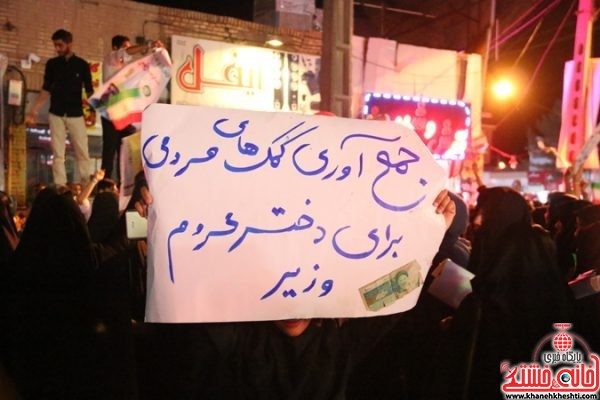 ایفل
جمع آوری کمک های مردمی
برای دختر محروم
وزیر
پایگاه خبری
خانه خشتی
www.khanehkheshti.com